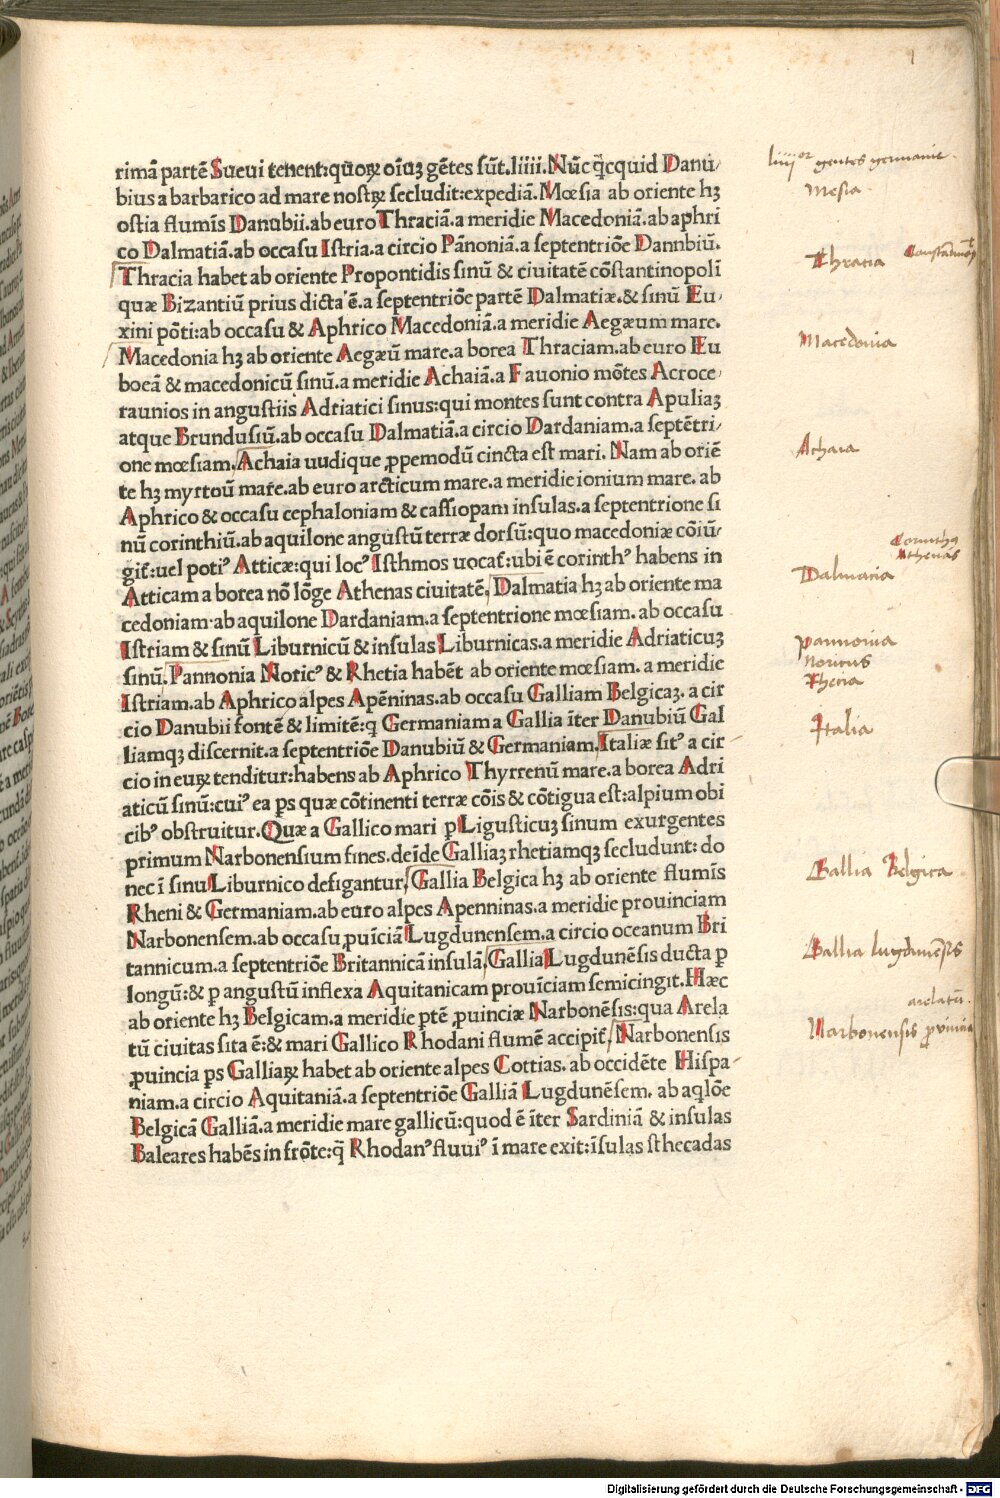 rimā partē Sueui tenent:quoꝝ oīuꝫ gētes sūt.liiii.Nūc qͥcquid Danu/
bius a barbarico ad mare nostꝝ secludit:expediā.Mœsia ab oriente hꝫ
ostia flumīs Danubii.ab euro Thraciā.a meridie Macedoniā.ab aphri
co Dalmatiā.ab occasu Istria.a circio Pānoniā.a septentriōe Dannbiū.
Thracia habet ab oriente Propontidis sinū & ciuitatē cōstantinopolī
quæ Bizantiū prius dicta ē.a septentriōe partē Dalmatiæ.& sinū Eu/
xini pōti:ab occasu & Aphrico Macedoniā.a meridie Aegæum mare.
Macedonia hꝫ ab oriente Aegæū mare.a borea Thraciam.ab euro Eu
boeā & macedonicū sinū.a meridie Achaiā.a Fauonio mōtes Acroce/
raunios in angustiis Adriatici sinus:qui montes sunt contra Apuliaꝫ
atque Brundusiū.ab occasu Dalmatiā.a circio Dardaniam.a septētri/
one mœsiam. Achaia uudique ꝓpemodū cincta est mari. Nam ab oriē
te hꝫ myrtoū mare.ab euro arcticum mare.a meridie ionium mare. ab
Aphrico & occasu cephaloniam & cassiopam insulas.a septentrione si
nū corinthiū.ab aquilone angustū terræ dorsū:quo macedoniæ cōiū/
git̄:uel potiꝰ Atticæ:qui locꝰ Isthmos uocat̄:ubi ē corinthꝰ habens in
Atticam a borea nō lōge Athenas ciuitatē. Dalmatia hꝫ ab oriente ma
cedoniam.ab aquilone Dardaniam.a septentrione mœsiam. ab occasu
Istriam & sinū Liburnicū & insulas Liburnicas.a meridie Adriaticuꝫ
sinū. Pannonia Noricꝰ & Rhetia habēt ab oriente mœsiam. a meridie
Istriam.ab Aphrico alpes Apēninas.ab occasu Galliam Belgicaꝫ. a cir
cio Danubii fontē & limitē:q̨ Germaniam a Gallia īter Danubiū Gal
liamqꝫ discernit.a septentriōe Danubiū & Germaniam. Italiæ sitꝰ a cir/
cio in euꝝ tenditur:habens ab Aphrico Thyrrenū mare.a borea Adri
aticū sinū:cuiꝰ ea ps quæ cōtinenti terræ cōis & cōtigua est:alpium obi
cibꝰ obstruitur.Quæ a Gallico mari ꝑ Ligusticuꝫ sinum exurgentes
primum Narbonensium fines.deīde Galliaꝫ rhetiamqꝫ secludunt: do
nec ī sinu Liburnico defigantur. Gallia Belgica hꝫ ab oriente flumīs
Rheni & Germaniam.ab euro alpes Apenninas.a meridie prouinciam
Narbonensem.ab occasu ꝓuīciā Lugdunensem.a circio oceanum Bri
tannicum.a septentriōe Britannicā insulā. Gallia Lugdunēsis ducta ꝑ
longū:& ꝑ angustū inflexa Aquitanicam prouīciam semicingit.Hæc
ab oriente hꝫ Belgicam.a meridie ptē ꝓuinciæ Narbonēsis:qua Arela
tū ciuitas sita ē:& mari Gallico Rhodani flumē accipit̄. Narbonensis
ꝓuincia ps Galliaꝝ habet ab oriente alpes Cottias. ab occidēte Hispa/
niam.a circio Aquitaniā.a septentriōe Galliā Lugdunēsem. ab aqlōe
Belgicā Galliā.a meridie mare gallicū:quod ē īter Sardiniā & insulas
Baleares habēs in frōte:q̄ Rhodanꝰ fluuiꝰ ī mare exit:īsulas sthecadas
liiiiᵒʳ gentes germanie.
Mesia.
Thracia
Macedonia
Achaia
Corinthꝰ
Athenas
Dalmatia
pannonia
Noricus
Rhetia
Italia
Gallia Belgica
Gallia lugdunēsis
arelatū.
Narbonensis ꝓvincia
Digitalisierung gefördert durch die Deutsche Forschungsgemeinschaft - DFG